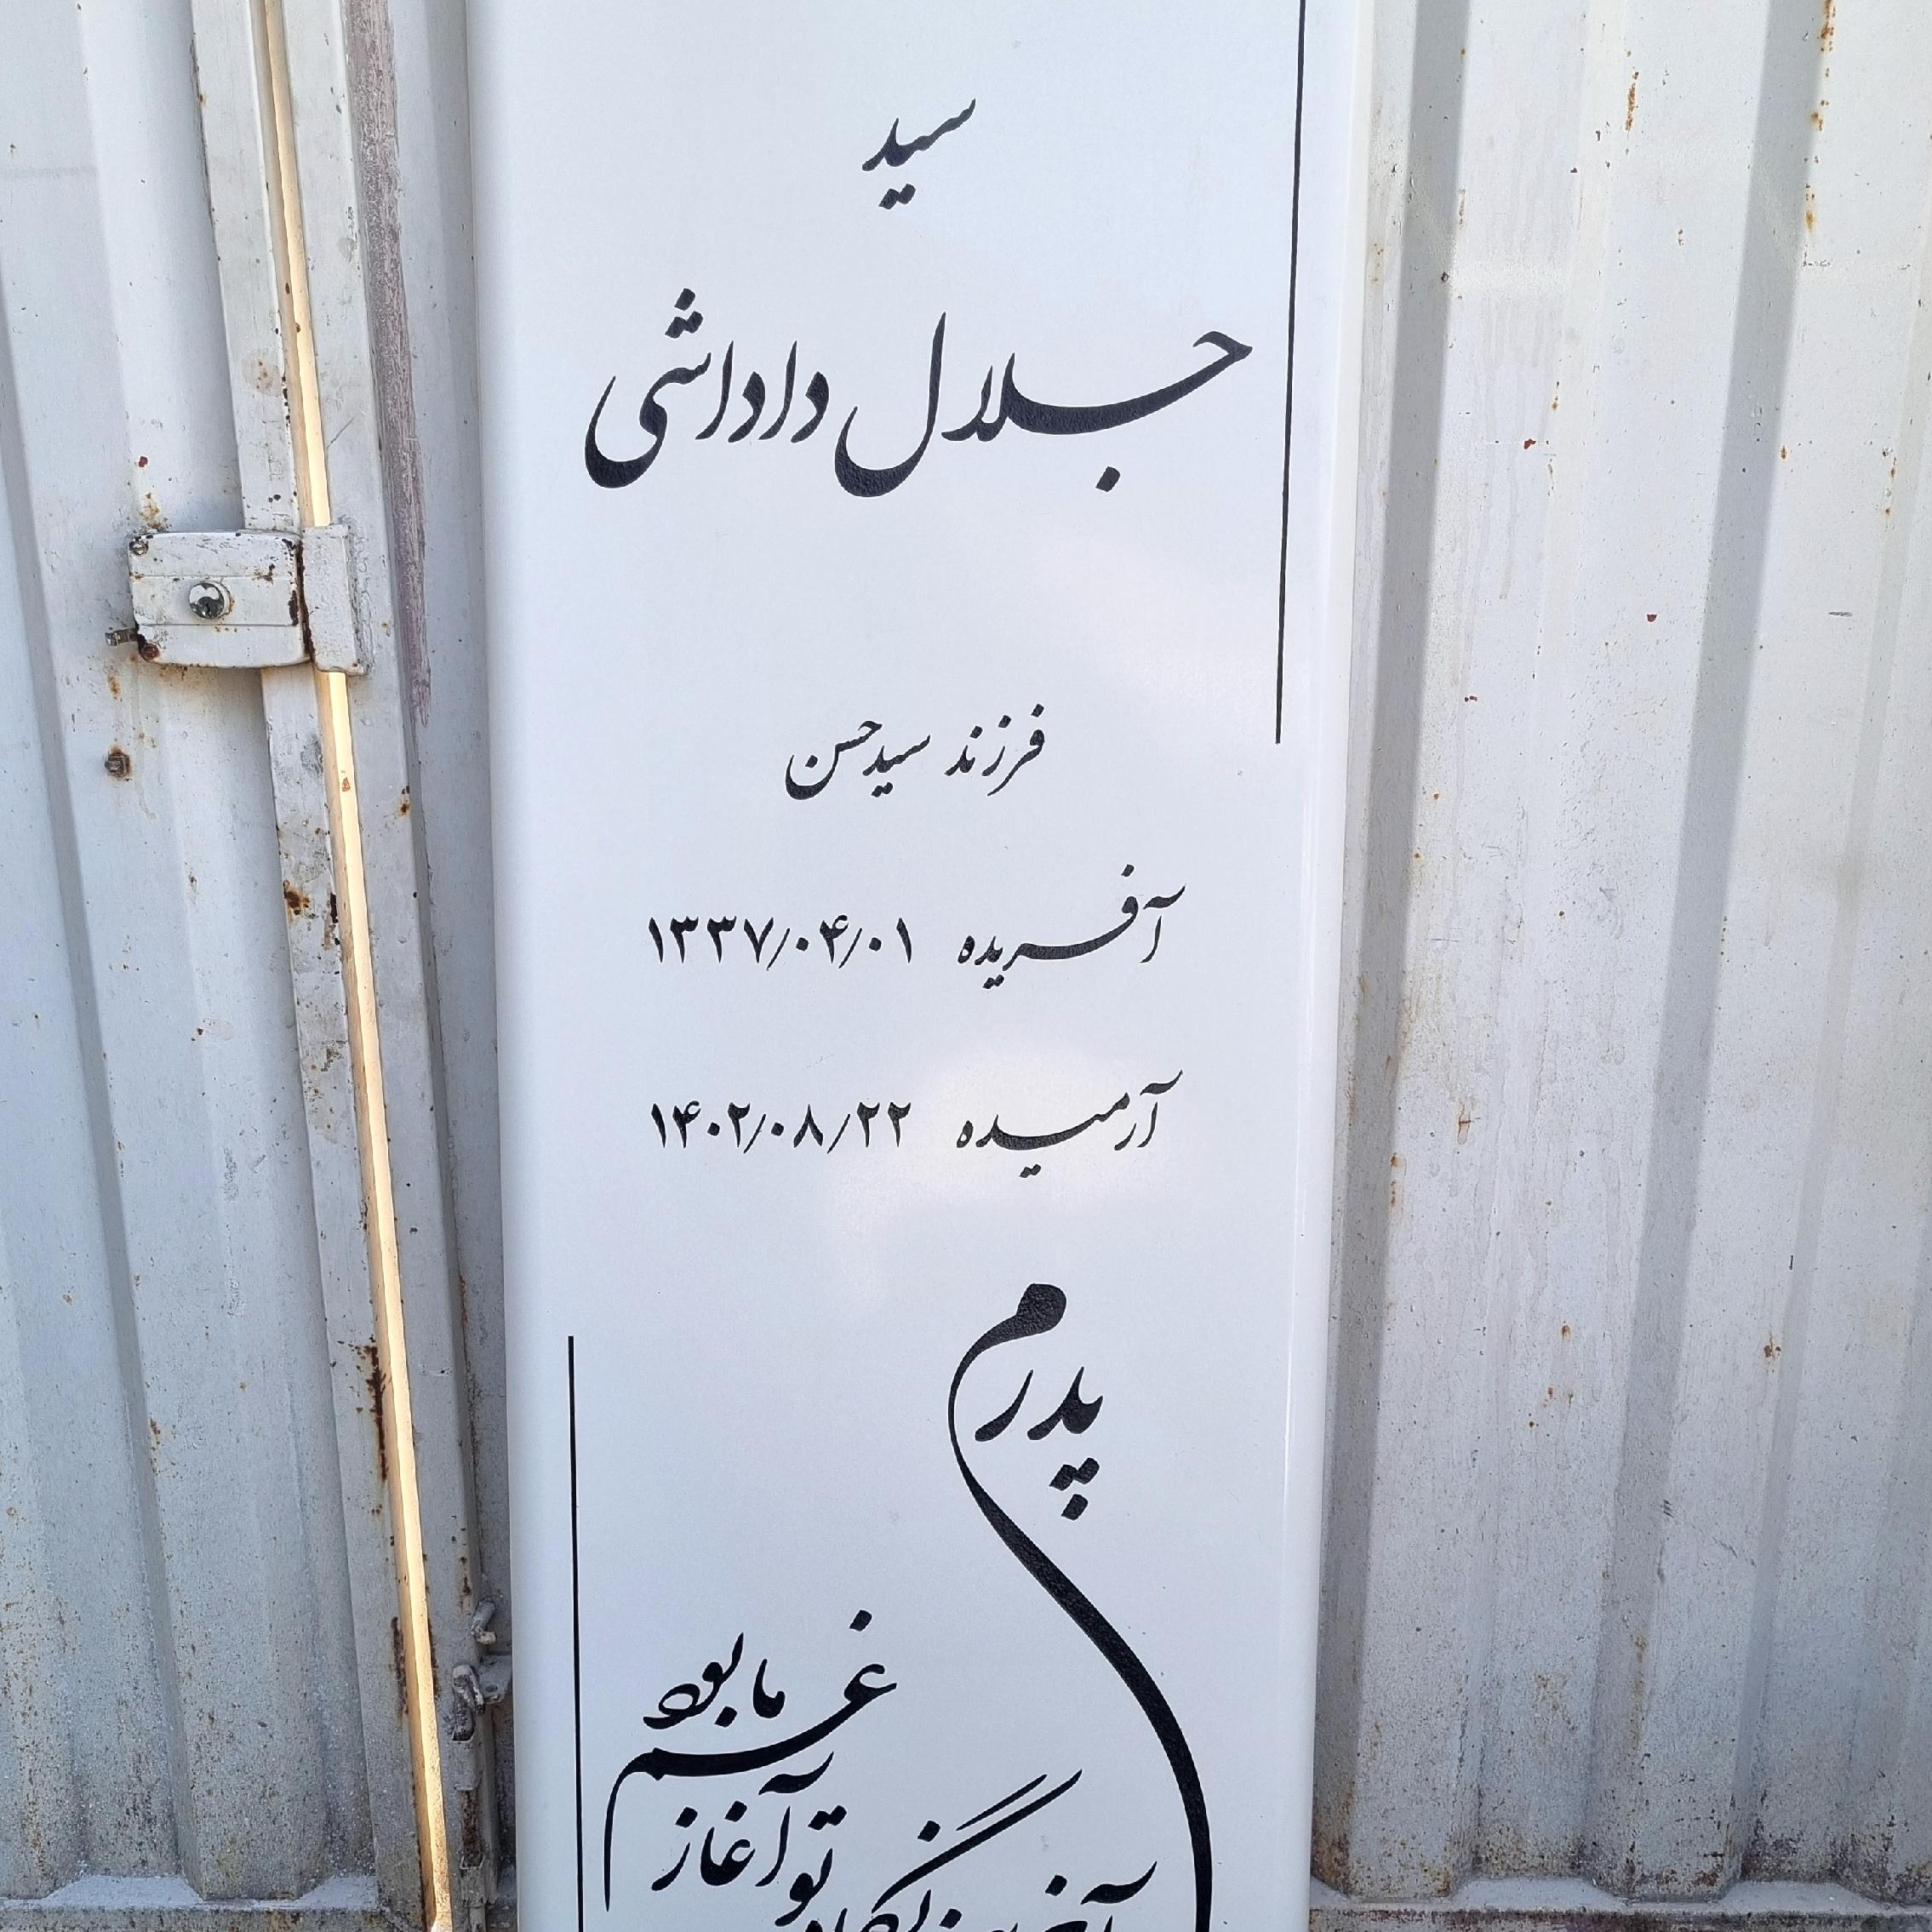 سید
جلال داداشی
فرزند سیدحسن
آفریده ۱۳۳۷/۰۴/۰۱
آرمیده ۱۴۰۲/۰۸/۲۲
پدرم
آخرین نگاه تو آغاز غم ما بود